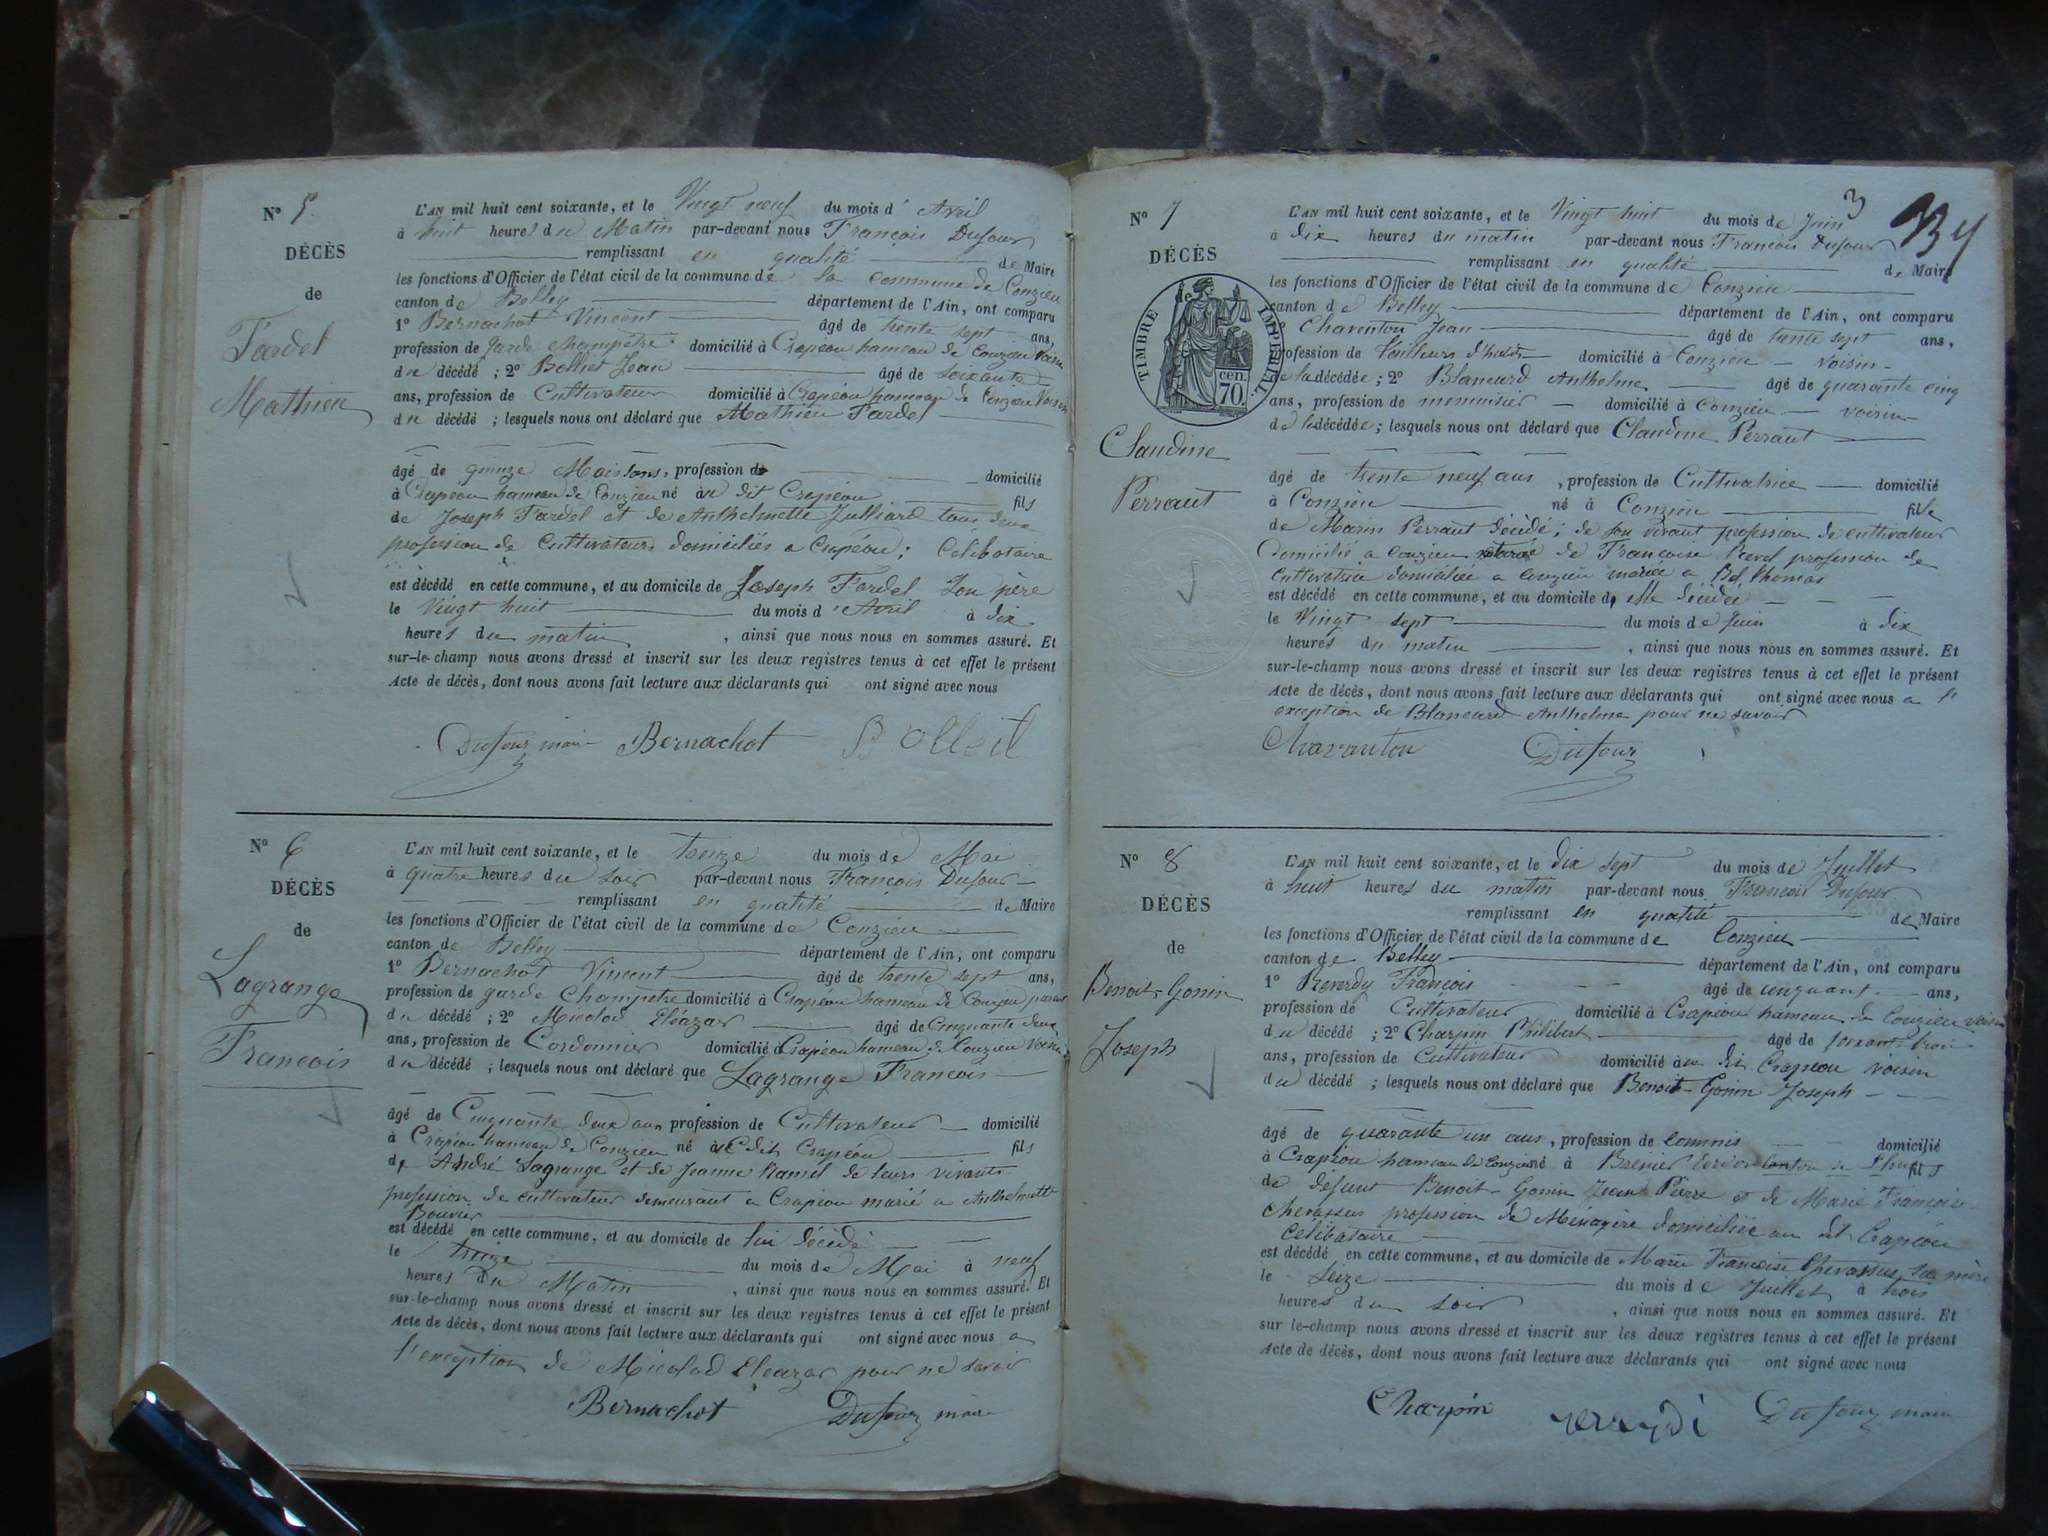 N° 5
DÉCÈS
de
Fardel
Mathieu
L'AN mil huit cent soixante, et le Vingt neuf du mois d' Avril
à huit heures du Matin par-devant nous François Dufour
remplissant en qualité de Maire
les fonctions d'Officier de l'état civil de la commune de la commune de Conzieu
canton de Belley département de l'Ain, ont comparu
1° Bernachot Vincent âgé de trente sept ans,
profession de garde champêtre domicilié à Crapéou hameau de Conzieu voisin
du décédé ; 2° Belliet Jean âgé de soixante
ans, profession de Cultivateur domicilié à Crapéou hameau de Conzieu Voisin
du décédé ; lesquels nous ont déclaré que Mathieu Fardel
âgé de quinze Mois , profession de domicilié
à Crapéou hameau de Conzieu né au dit Crapéou fils
de Joseph Fardel et de Anthelmette Julliard tous deux
profession de Cultivateurs domiciliés a Crapéou ; Celibataire
est décédé en cette commune, et au domicile de Joseph Fardel son père
le Vingt huit du mois d' Avril à dix
heures du matin , ainsi que nous nous en sommes assuré. Et
sur-le-champ nous avons dressé et inscrit sur les deux registres tenus à cet effet le présent
Acte de décès, dont nous avons fait lecture aux déclarants qui ont signé avec nous
Dufour maire Bernachot
N° 6
DÉCÈS
de
Lagrange
Francois
L'AN mil huit cent soixante, et le treize du mois de Mai
à quatre heures du soir par-devant nous François Dufour
remplissant en qualité de Maire
les fonctions d'Officier de l'état civil de la commune de Conzieu
canton de Belley département de l'Ain, ont comparu
1° Bernachot Vincent âgé de trente sept ans,
profession de garde Champêtre domicilié à Crapéou hameau de Conzieu
du décédé ; 2° Micolod Eléazar âgé de Cinquante deux
ans, profession de Cordonnier domicilié à Crapéou hameau de Conzieu Voisin
du décédé ; lesquels nous ont déclaré que Lagrange Francois
âgé de Cinquante deux ans profession de Cultivateur domicilié
à Crapéou hameau de Conzieu né au dit Crapéou fils
de André Lagrange et de Jeanne de leurs vivants
profession de cultivateur demeurant a Crapéou marié a Anthelmette
Bouvier
est décédé en cette commune, et au domicile de lui décédé
le treize du mois de Mai à neuf
heures du Matin , ainsi que nous nous en sommes assuré. Et
sur-le-champ nous avons dressé et inscrit sur les deux registres tenus à cet effet le présent
Acte de décès, dont nous avons fait lecture aux déclarants qui ont signé avec nous a
l'exception de Micolod Eleazar pour ne savoir
Bernachot Dufour maire
3
N° 7
DÉCÈS
de
TIMBRE IMPERIAL
70 cen.
Claudine
Perraut
L'AN mil huit cent soixante, et le Vingt huit du mois de Juin
à dix heures du matin par-devant nous Francois Dufour
remplissant en qualité de Maire
les fonctions d'Officier de l'état civil de la commune de Conzieu
canton de Belley département de l'Ain, ont comparu
Charenton Jean âgé de trente sept ans,
profession de Tailleurs d'habits domicilié à Conzieu voisin
de la décédée ; 2° Blancard Anthelme âgé de quarante cinq
ans, profession de menuisier domicilié à Conzieu voisin
de la décédée ; lesquels nous ont déclaré que Claudine Perraut
âgé de trente neuf ans , profession de Cultivatrice domicilié
à Conzieu né à Conzieu fille
de Marin Perraut décédé ; de son vivant profession de cultivateur
domicilié a conzieu de Francoise Revel profession de
cultivatrice domiciliée a conzieu mariée a Bel thomas
est décédé en cette commune, et au domicile d elle décédée
le Vingt sept du mois de Juin à dix
heures du matin , ainsi que nous nous en sommes assuré. Et
sur-le-champ nous avons dressé et inscrit sur les deux registres tenus à cet effet le présent
Acte de décès, dont nous avons fait lecture aux déclarants qui ont signé avec nous a l'
exception de Blancard Anthelme pour ne savoir
Charanton Dufour
N° 8
DÉCÈS
de
Benoit-Gonin
Joseph
L'AN mil huit cent soixante, et le dix sept du mois de Juillet
à huit heures du matin par-devant nous Francois Dufour
remplissant en qualité de Maire
les fonctions d'Officier de l'état civil de la commune de Conzieu
canton de Belley département de l'Ain, ont comparu
1° Reverdy Francois âgé de cinquant ans,
profession de Cultivateur domicilié à Crapeou hameau de Conzieu voisin
du décédé ; 2° Charpin Philibert âgé de soixant trois
ans, profession de Cultivateur domicilié au dit Crapeou voisin
du décédé ; lesquels nous ont déclaré que Benoit-Gonin Joseph
âgé de quarante un ans , profession de commis domicilié
à Crapéou hameau de Conzieu né à canton de fils
de défunt Benoit-Gonin Jean Pierre et de Marie Françoise
Chevassus profession de Ménagère domiciliée au dit Crapéou
célibataire
est décédé en cette commune, et au domicile de Marie Francoise Chevassus sa mère
le seize du mois de Juillet à trois
heures du soir , ainsi que nous nous en sommes assuré. Et
sur le-champ nous avons dressé et inscrit sur les deux registres tenus à cet effet le présent
Acte de décès, dont nous avons fait lecture aux déclarants qui ont signé avec nous
Charpin Dufour maire